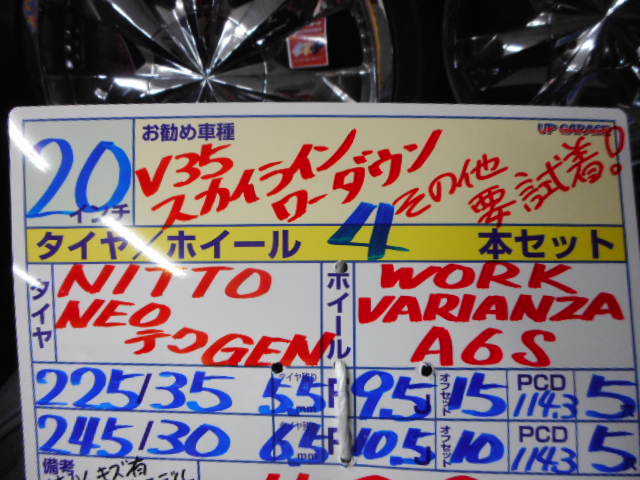 お勧め車種
UP GARAGE
20インチ
V35 スカイライン ローダウン その他 要試着!
タイヤ/ホイール 4 本セット
タイヤ
NITTO
NEO
テクGEN
ホイール
WORK
VARIANZA
A6S
225/35 タイヤ残り 5.5mm F 9.5J オフセット 15 PCD 114.3 5
245/30 タイヤ残り 6.5mm R 10.5J オフセット 10 PCD 114.3 5
備考
キズ有